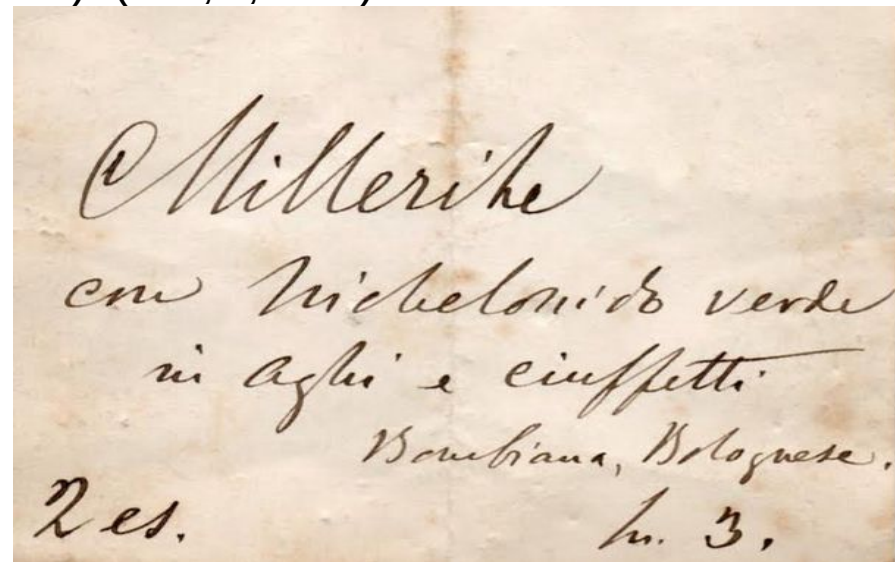 Millerite
con Nichelossido verde
in aghi e ciuffetti
Bombiana, Bolognese.
2 es. 3.